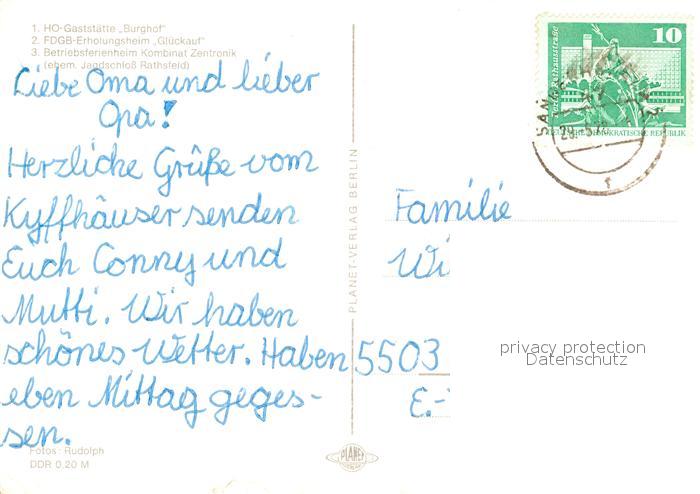 1. HO-Gaststätte „Burghof"
2. FDGB-Erholungsheim „Glückauf"
3. Betriebsferienheim Kombinat Zentronik
(ehem. Jagdschloß Rathsfeld)
Liebe Oma und lieber
Opa!
Herzliche Grüße vom
Kyffhäuser senden
Euch Conny und
Mutti. Wir haben
schönes Wetter. Haben
eben Mittag geges-
sen.
Foto: Rudolph
DDR 0,20 M
PLANET-VERLAG BERLIN
PLANET
10
DEUTSCHE DEMOKRATISCHE REPUBLIK
Familie
Wi
5503
E.-
privacy protection
Datenschutz